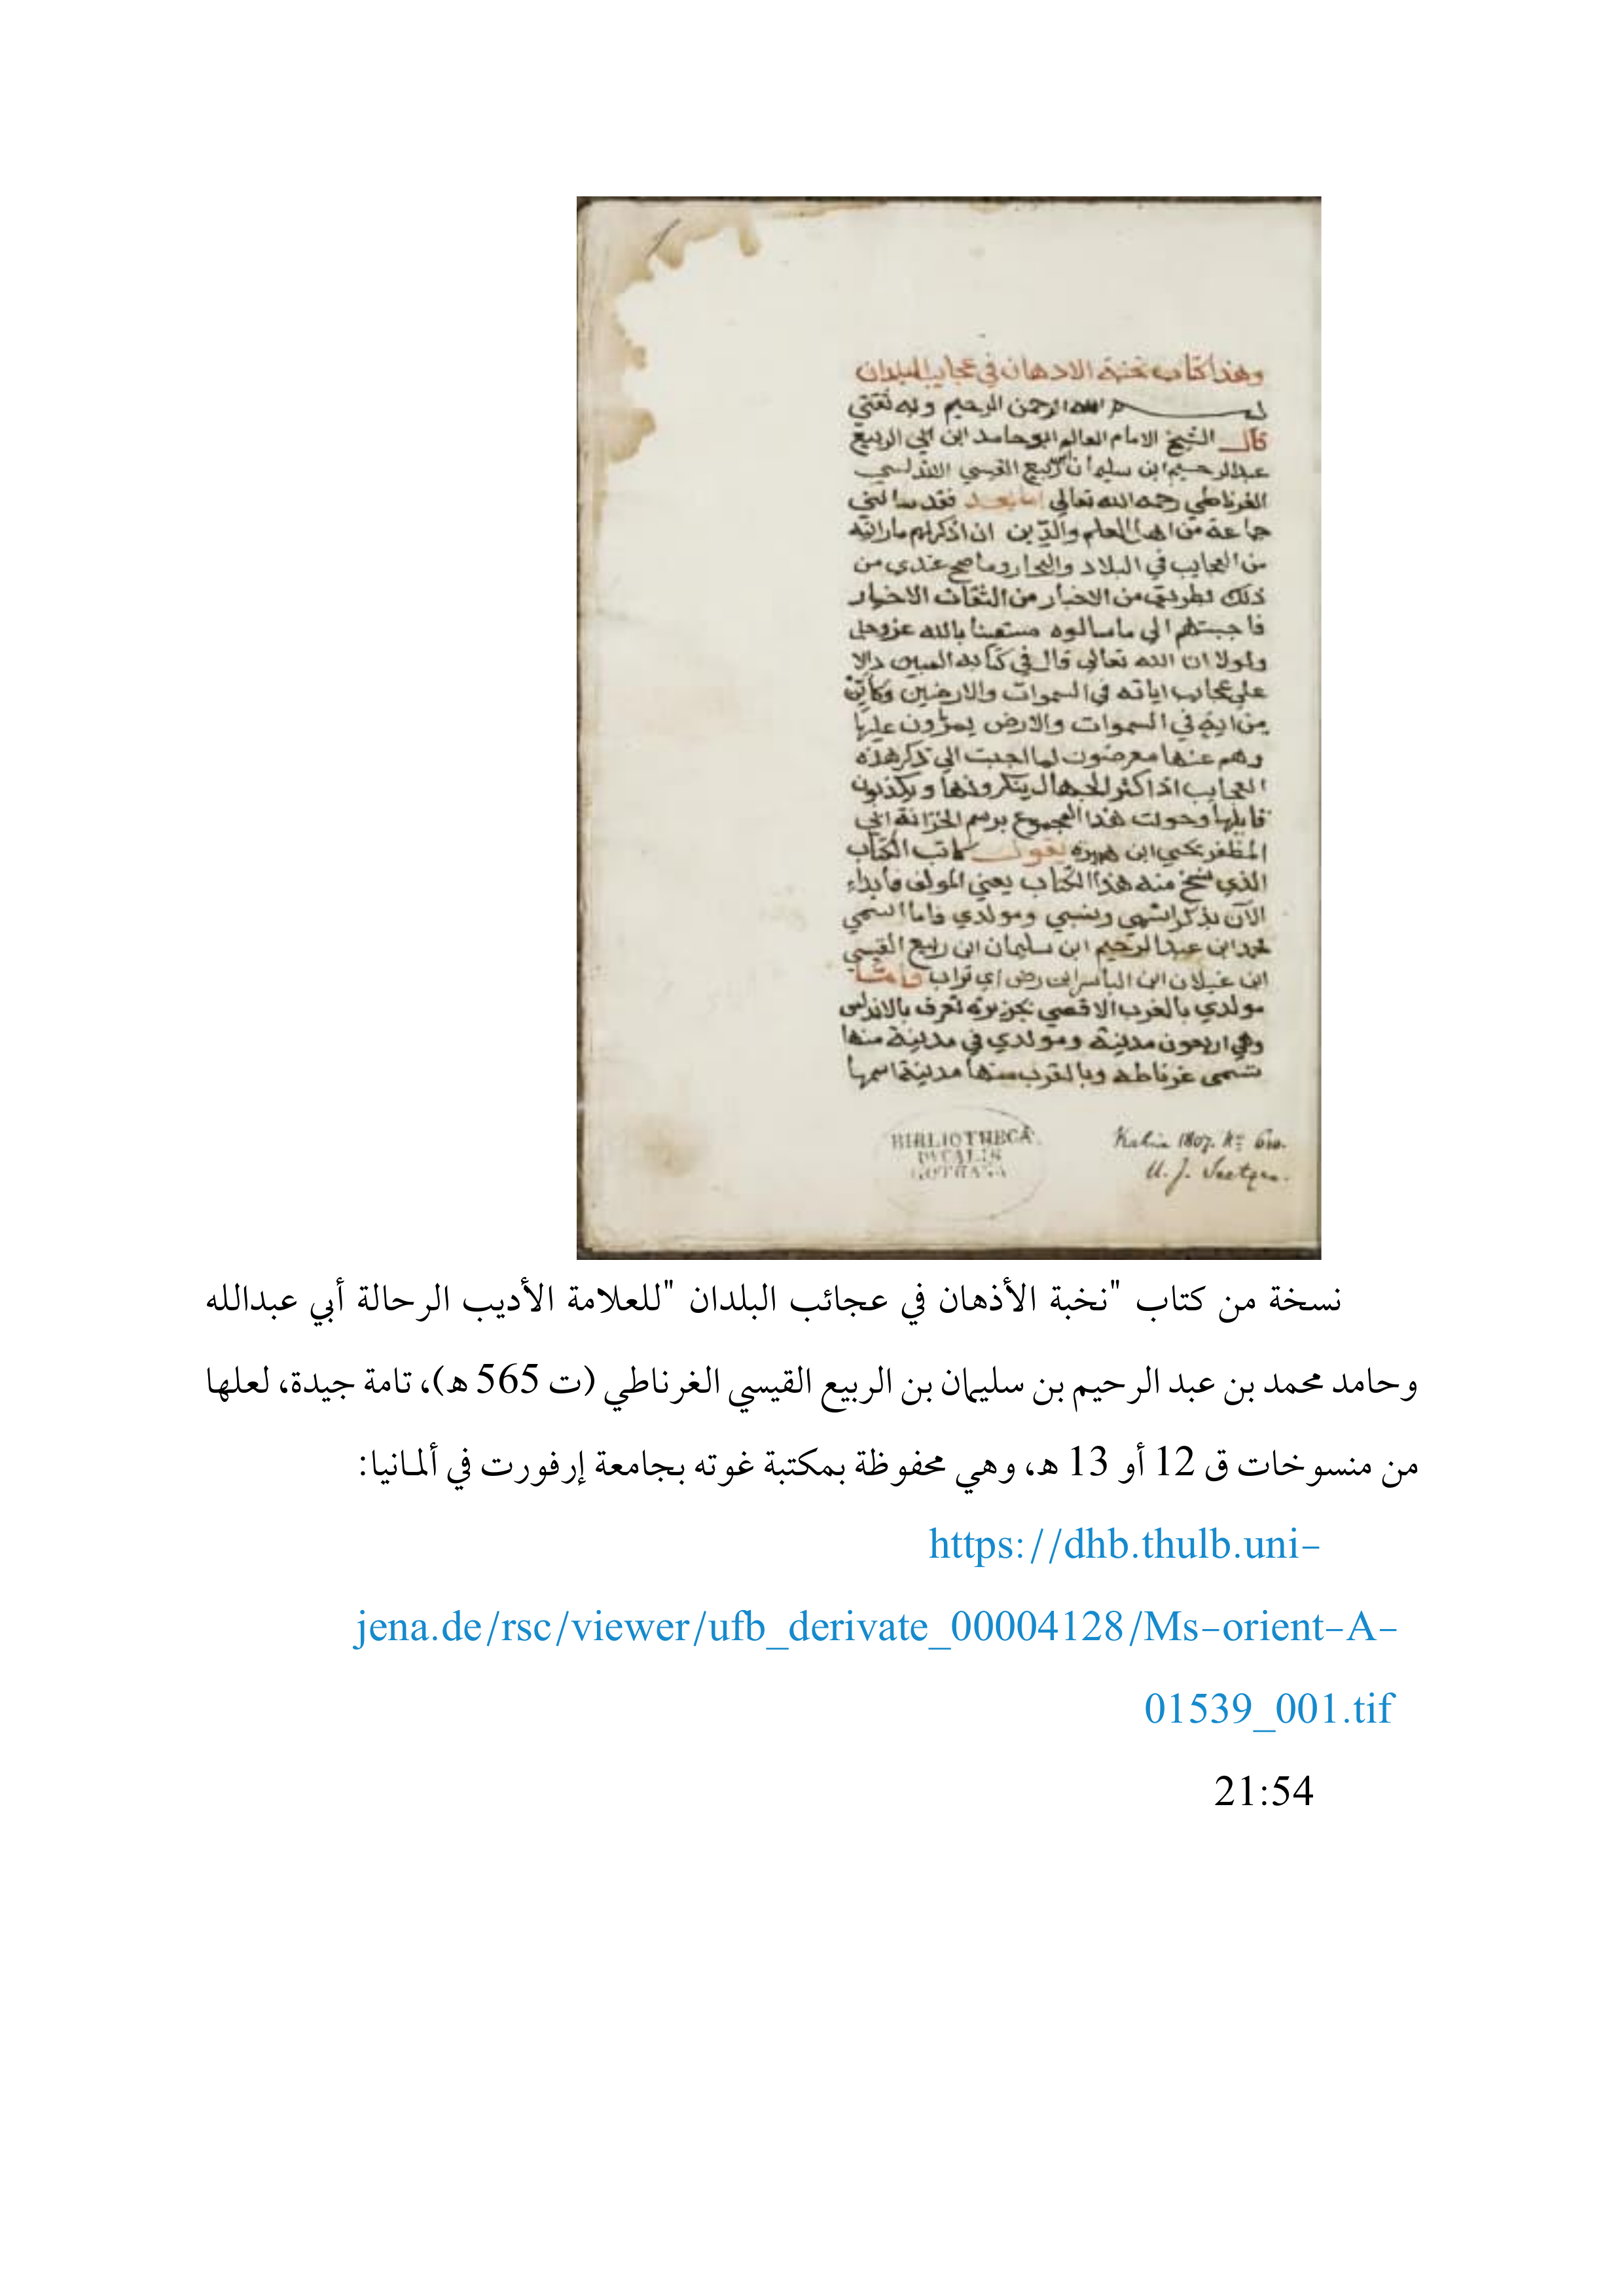 وهذا كتاب نخبة الادهان في عجايب البلدان
بسم الله الرحمن الرحيم وبه ثقتي
قال الشيخ الامام العالم ابو حامد ابن ابي الربيع
عبد الرحيم ابن سليمان ربيع القيسي الاندلسي
الغرناطي رحمه الله تعالي اما بعد فقد سالني
جماعة من اهل العلم والدين ان اذكر لهم ما رايته
من العجايب في البلاد والبحار وما صح عندي من
ذلك بطريق من الاخبار من الثقات الاخيار
فاجبتهم الي ما سالوه مستعينا بالله عز وجل
ولولا ان الله تعالى قال في كتابه المبين دالا
علي عجايب اياته في السموات والارضين وكاين
من اية في السموات والارض يمرون عليها
وهم عنها معرضون لما اجبت الي ذكر هذه
العجايب اذ اكثر الجهال ينكرونها ويكذبون
قايلها وحولت هذا المجموع برسم الخزانة ابي
المظفر يحيي ابن يقول كاتب الكتاب
الذي نسخ منه هذا الكتاب يعني المولف فابداء
الآن بذكر اسمي ونسبي ومولدي فاما اسمي
محمد ابن عبد الرحيم ابن سليمان ابن ربيع القيسي
ابن غيلان ابن
مولدي بالغرب الاقصي بجزيرة تعرف بالاندلس
وهي اربعون مدينة ومولدي في مدينة منها
تسمى غرناطه وبالقرب منها مدينة اسمها
BIBLIOTHECA
DVCALIS
GOTHANA
Kahira 1807.
U. J. Seetzen.
نسخة من كتاب "نخبة الأذهان في عجائب البلدان "للعلامة الأديب الرحالة أبي عبدالله
وحامد محمد بن عبد الرحيم بن سليمان بن الربيع القيسي الغرناطي (ت 565 هـ)، تامة جيدة، لعلها
من منسوخات ق 12 أو 13 هـ، وهي محفوظة بمكتبة غوته بجامعة إرفورت في ألمـانيا:
https://dhb.thulb.uni-
jena.de/rsc/viewer/ufb_derivate_00004128/Ms-orient-A-
01539_001.tif
21:54